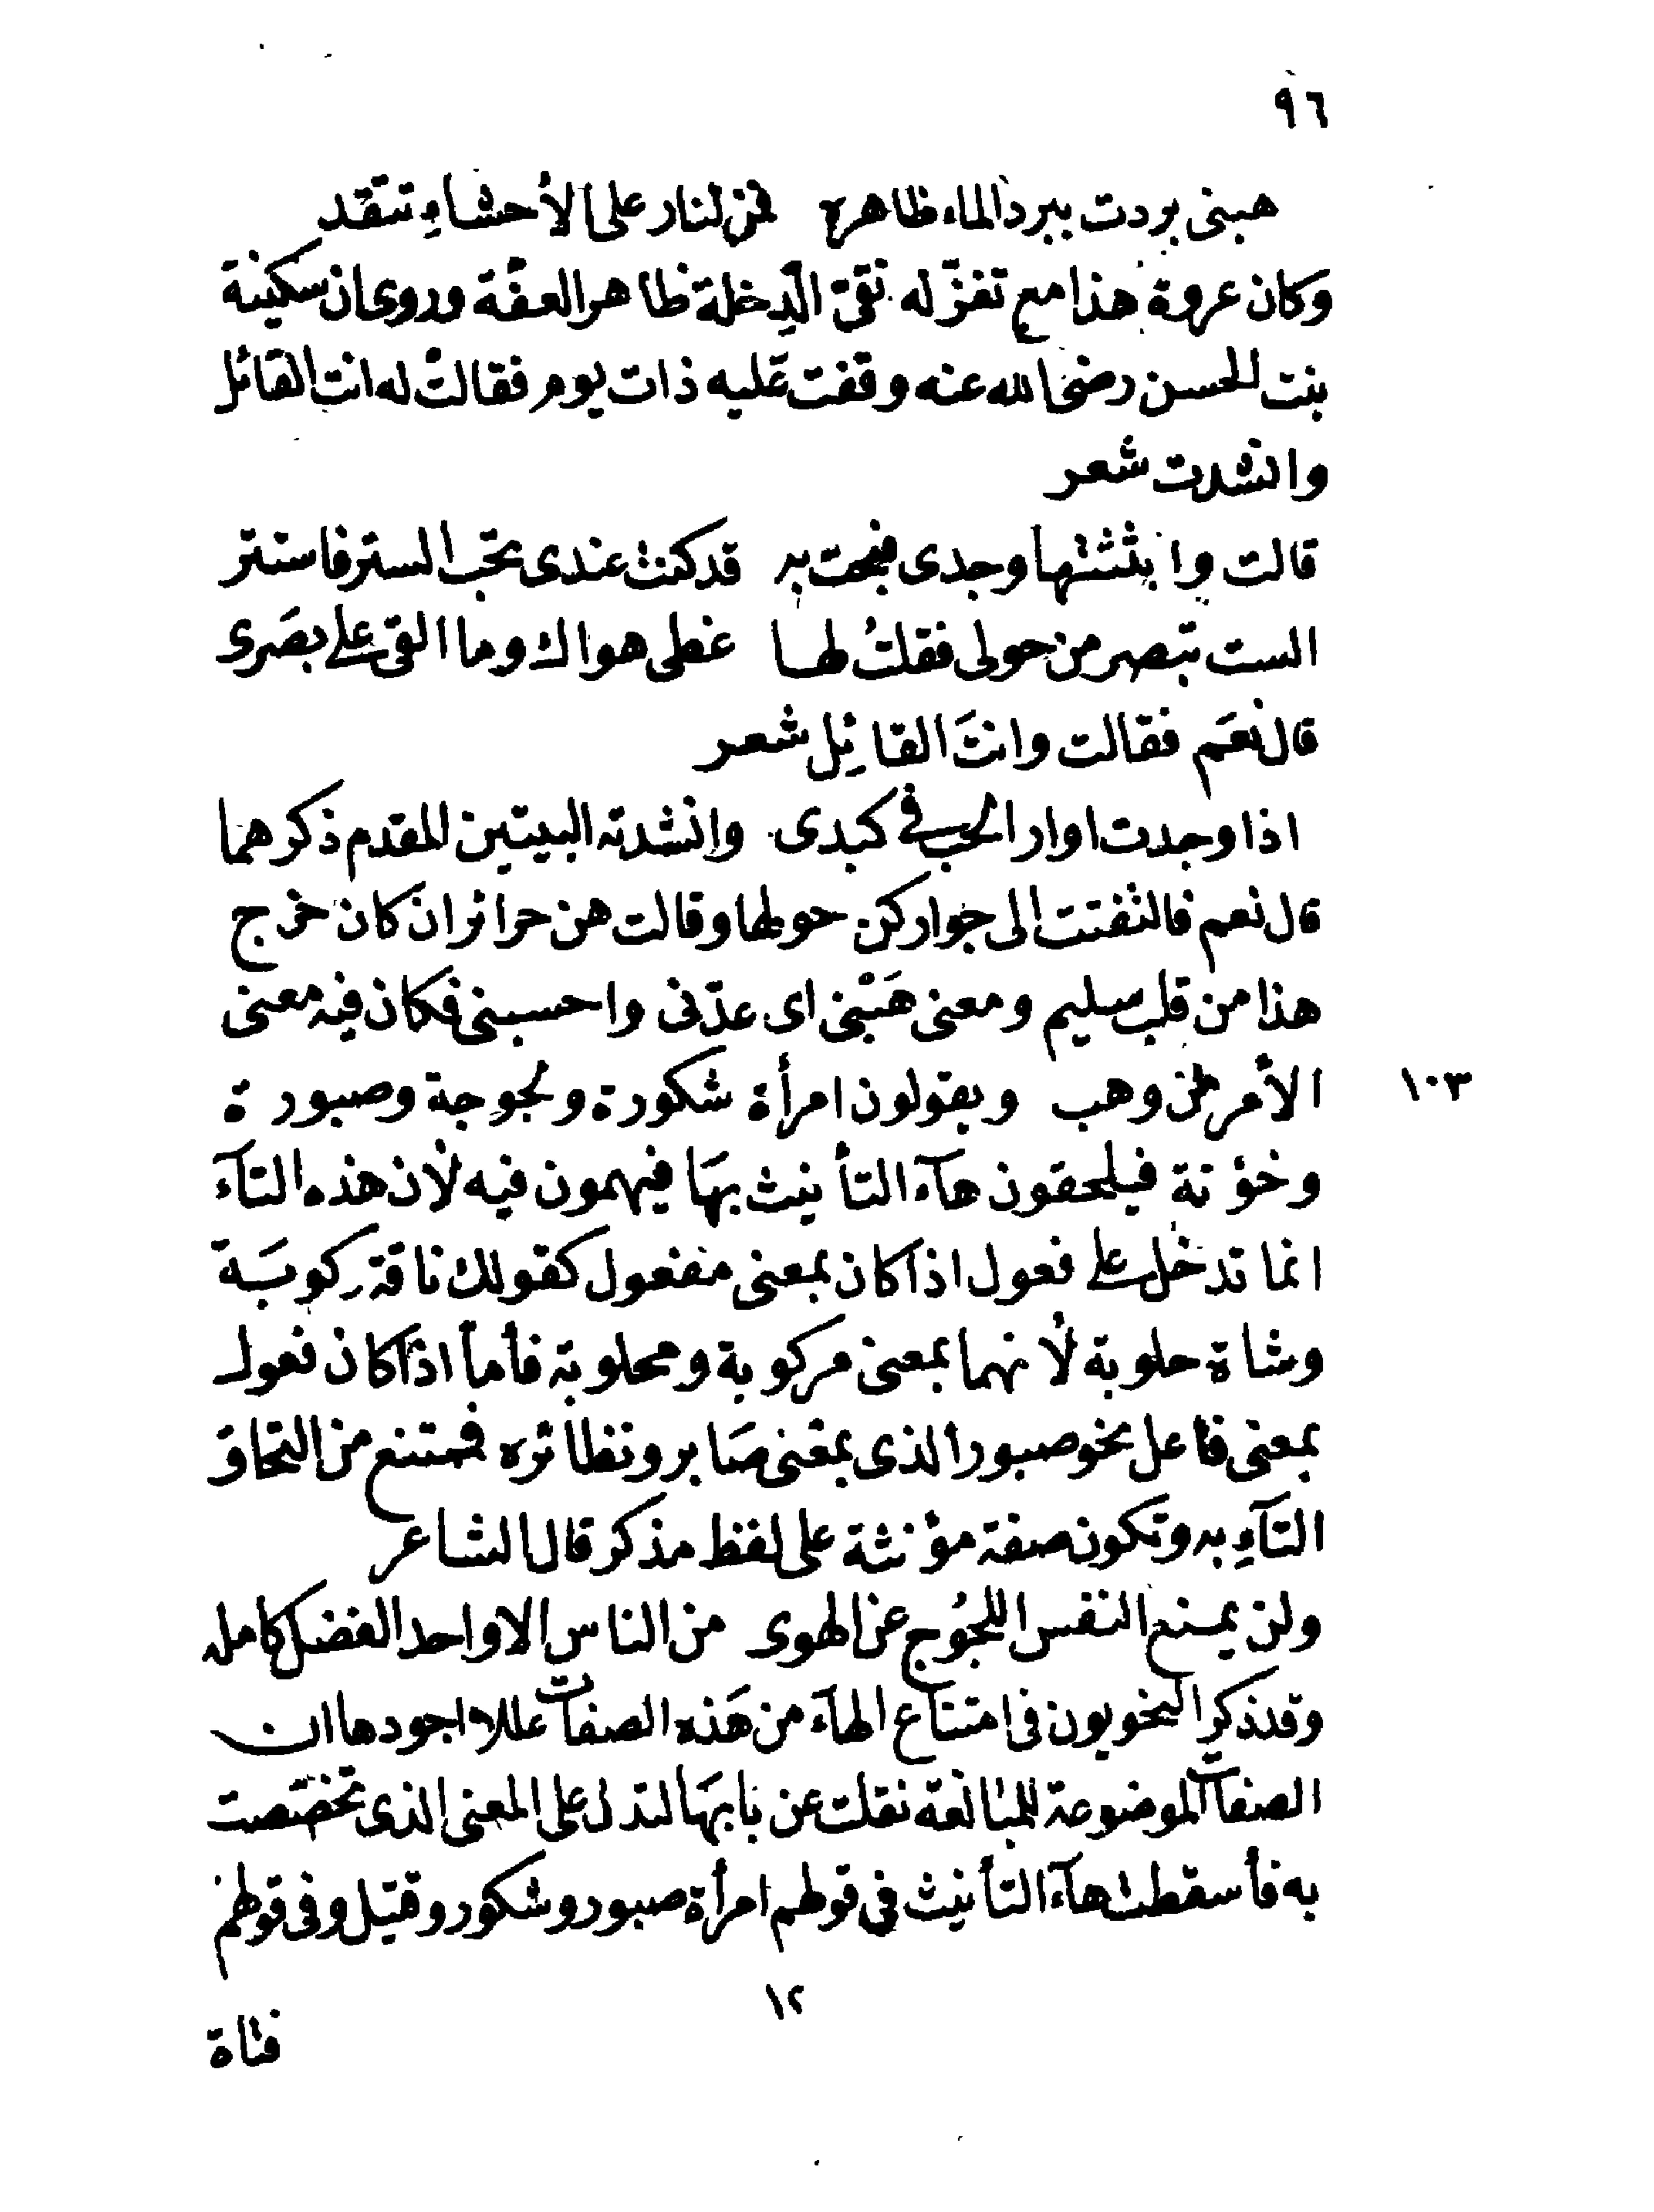 ٩٦
هبنى بردت ببرد الماء ظاهره فمن لنار على الأحشاءِ تتقد
وكان عروة هذا مع تغزّله نقىّ الدِخلة ظاهر العفّة وروى ان سكينة
بنت الحسن رضى الله عنه وقفت عليه ذات يوم فقالت له انت القائل
وانشدت شعر
قالت وابثثتها وجدى فبحت به قد كنت عندى تحب الستر فاستتر
الست تبصر من حولى فقلتُ لها غطى هواك وما القى على بصَرى
قال نعَم فقالت وانتَ القائِل شعر
اذا وجدت اوار الحب فى كبدى وانشدته البيتين المقدم ذكرهما
قال نعم فالتفتت الى جوار كن حولها وقالت هن حرائر ان كان خرج
هذا من قلب سليم ومعنى هَبْنى اى عدّنى واحسبنى فكان فيه معنى
الأمر من وهب ويقولون امرأة شكورة ولجوجة وصبورة
١٠٣
وخؤنة فيلحقون هآء التأنيث بهَا فيهمون فيه لأن هذه التآء
انما تدخل على فعول اذا كان بمعنى مفعول كقولك ناقة ركوبَة
وشاة حلوبة لأنهما بمعنى مركوبة ومحلوبة فأما اذا كان فعول
بمعنى فاعل نحو صبور الذى بمعنى صَابر ونظائره فممتنع من التحاق
التآءِ به وتكون صفة مؤنثة على لفظ مذكر قال الشاعر
ولن يمنع النفس اللجُوج عن الهوى من الناس الا واحد الفضل كامله
وقد ذكر النحويون فى امتناع الهآء من هَذه الصفات عللا اجودها ان
الصفات الموضوعة للمبَالغة نقلت عن بابهَا لتدل على المعنى الذى تخصّصت
به فأسقطت هآء التأنيث فى قولهم امرأة صبور وشكور وقتيل وفى قولهم
١٢
فتاة